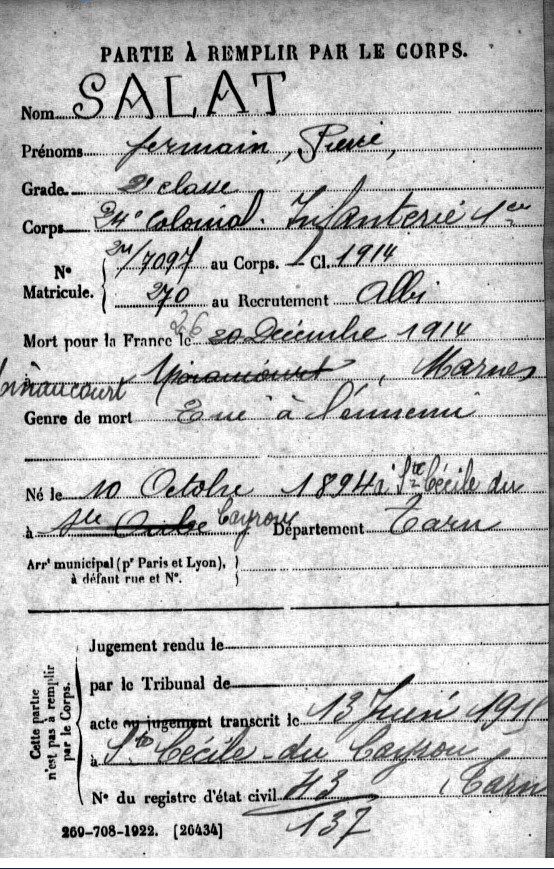 PARTIE À REMPLIR PAR LE CORPS.
Nom SALAT
Prénoms Germain, Pierre,
Grade 2e classe
Corps 24e Colonial. Infanterie
No Matricule. 24/7097 au Corps. — Cl. 1914
270 au Recrutement Albi
Mort pour la France le 26 20 Décembre 1914
à , Marnes
Genre de mort Tué à l'ennemi
Né le 10 Octobre 1894 à Ste Cécile du
à Ste Cayrou Département Tarn
Arrt municipal (pr Paris et Lyon),
à défaut rue et No.
Cette partie
n'est pas à remplir
par le Corps.
Jugement rendu le
par le Tribunal de
acte ou jugement transcrit le 13 Juin 1915
à Ste Cécile-du Cayrou
No du registre d'état civil 43 Tarn
137
269-708-1922. [26434]